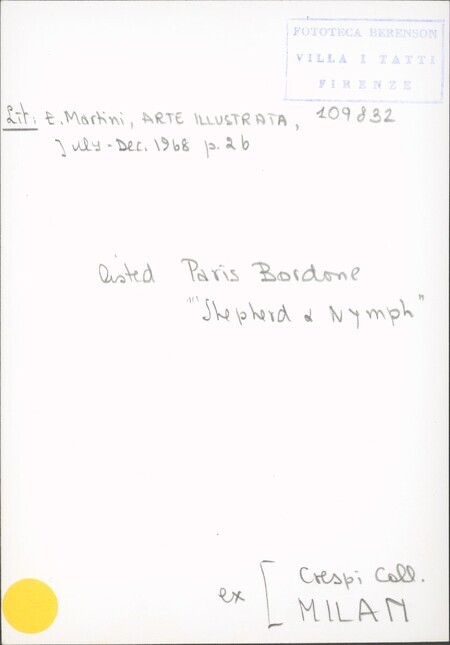 FOTOTECA BERENSON
VILLA I TATTI
FIRENZE
Lit: E. Martini, ARTE ILLUSTRATA, 109832
July-Dec. 1968 p. 26
listed Paris Bordone
"Shepherd & Nymph"
ex [ Crespi Coll.
MILAN